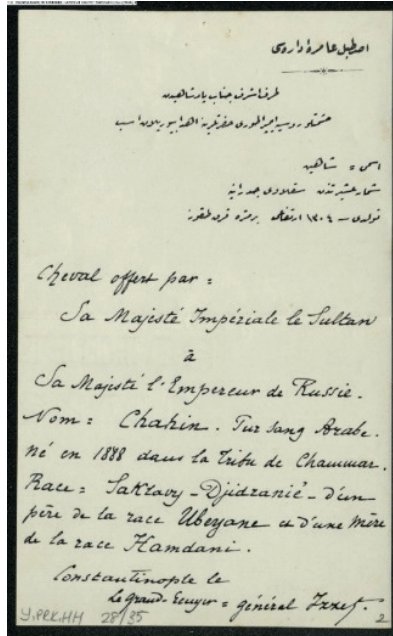 اصطبل عامره اداره سى
طرف اشرف جناب پادشاهيدن
حشمتلو روسيه ايمپراطورى حضرتلرينه اهدا بيوريلان اسب
اسمى = شاهين
شمر عشيرتندن سقلاوى جدرانيه
تولدى ١٣٠٤ ارتفاعى بر متره قرق طقوز
Cheval offert par =
Sa Majesté Impériale le Sultan
à
Sa Majesté l'Empereur de Russie.
Nom = Chahin. Pur sang Arabe.
né en 1888 dans la Tribu de Chammar.
Race = Saklavy-Djidranié - d'un
père de la race Ubeyane et d'une mère
de la race Hamdani.
Constantinople le
Le grand-Ecuyer = général Izzet.
Y.PRK.HH 28/35
2